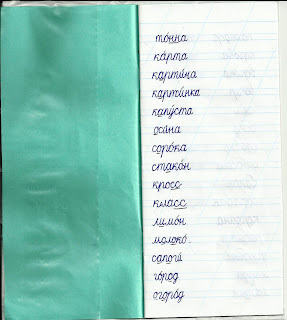 тонна
ка́рта
карти́на
карти́нка
капу́ста
оси́на
соро́ка
стака́н
кросс
класс
лимо́н
молоко́
сапоги́
го́род
огоро́д